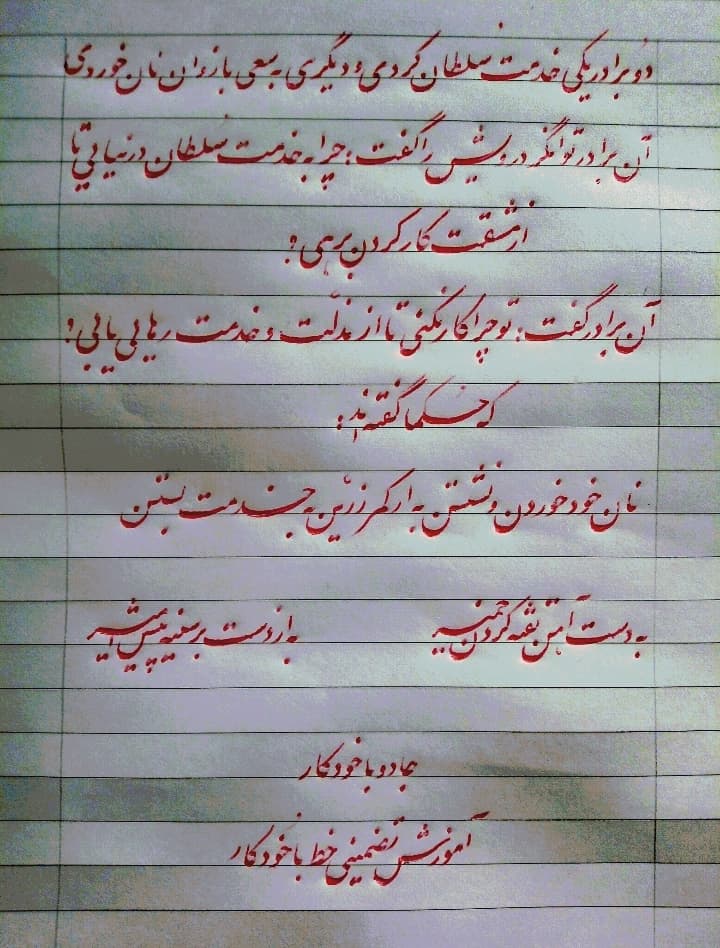 دو برادر یکی خدمت سلطان کردی و دیگری به سعی بازوان نان خوردی
آن برادر توانگر درویش را گفت: چرا به خدمت سلطان درنیایی تا
از مشقت کار کردن برهی؟
آن برادر گفت: تو چرا کار نکنی تا از مذلّت و خدمت رهایی یابی؟
که حکما گفته‌اند:
نان خود خوردن و نشستن به از کمر زرّین به خدمت بستن
به دست آهن تفته کردن خمیر به از دست بر سینه پیش امیر
جادو با خودکار
آموزش تضمینی خط با خودکار